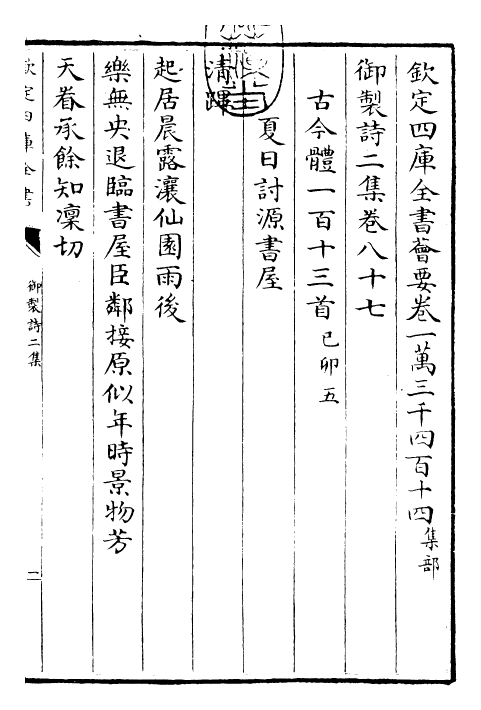 欽定四庫全書薈要卷一萬三千四百十四集部
御製詩二集卷八十七
古今體一百十三首己卯五
夏日討源書屋
清蹕
起居晨露瀼仙園雨後
樂無央退臨書屋臣鄰接原似年時景物芳
天眷承餘知凜切
欽定四庫全書
御製詩二集
二